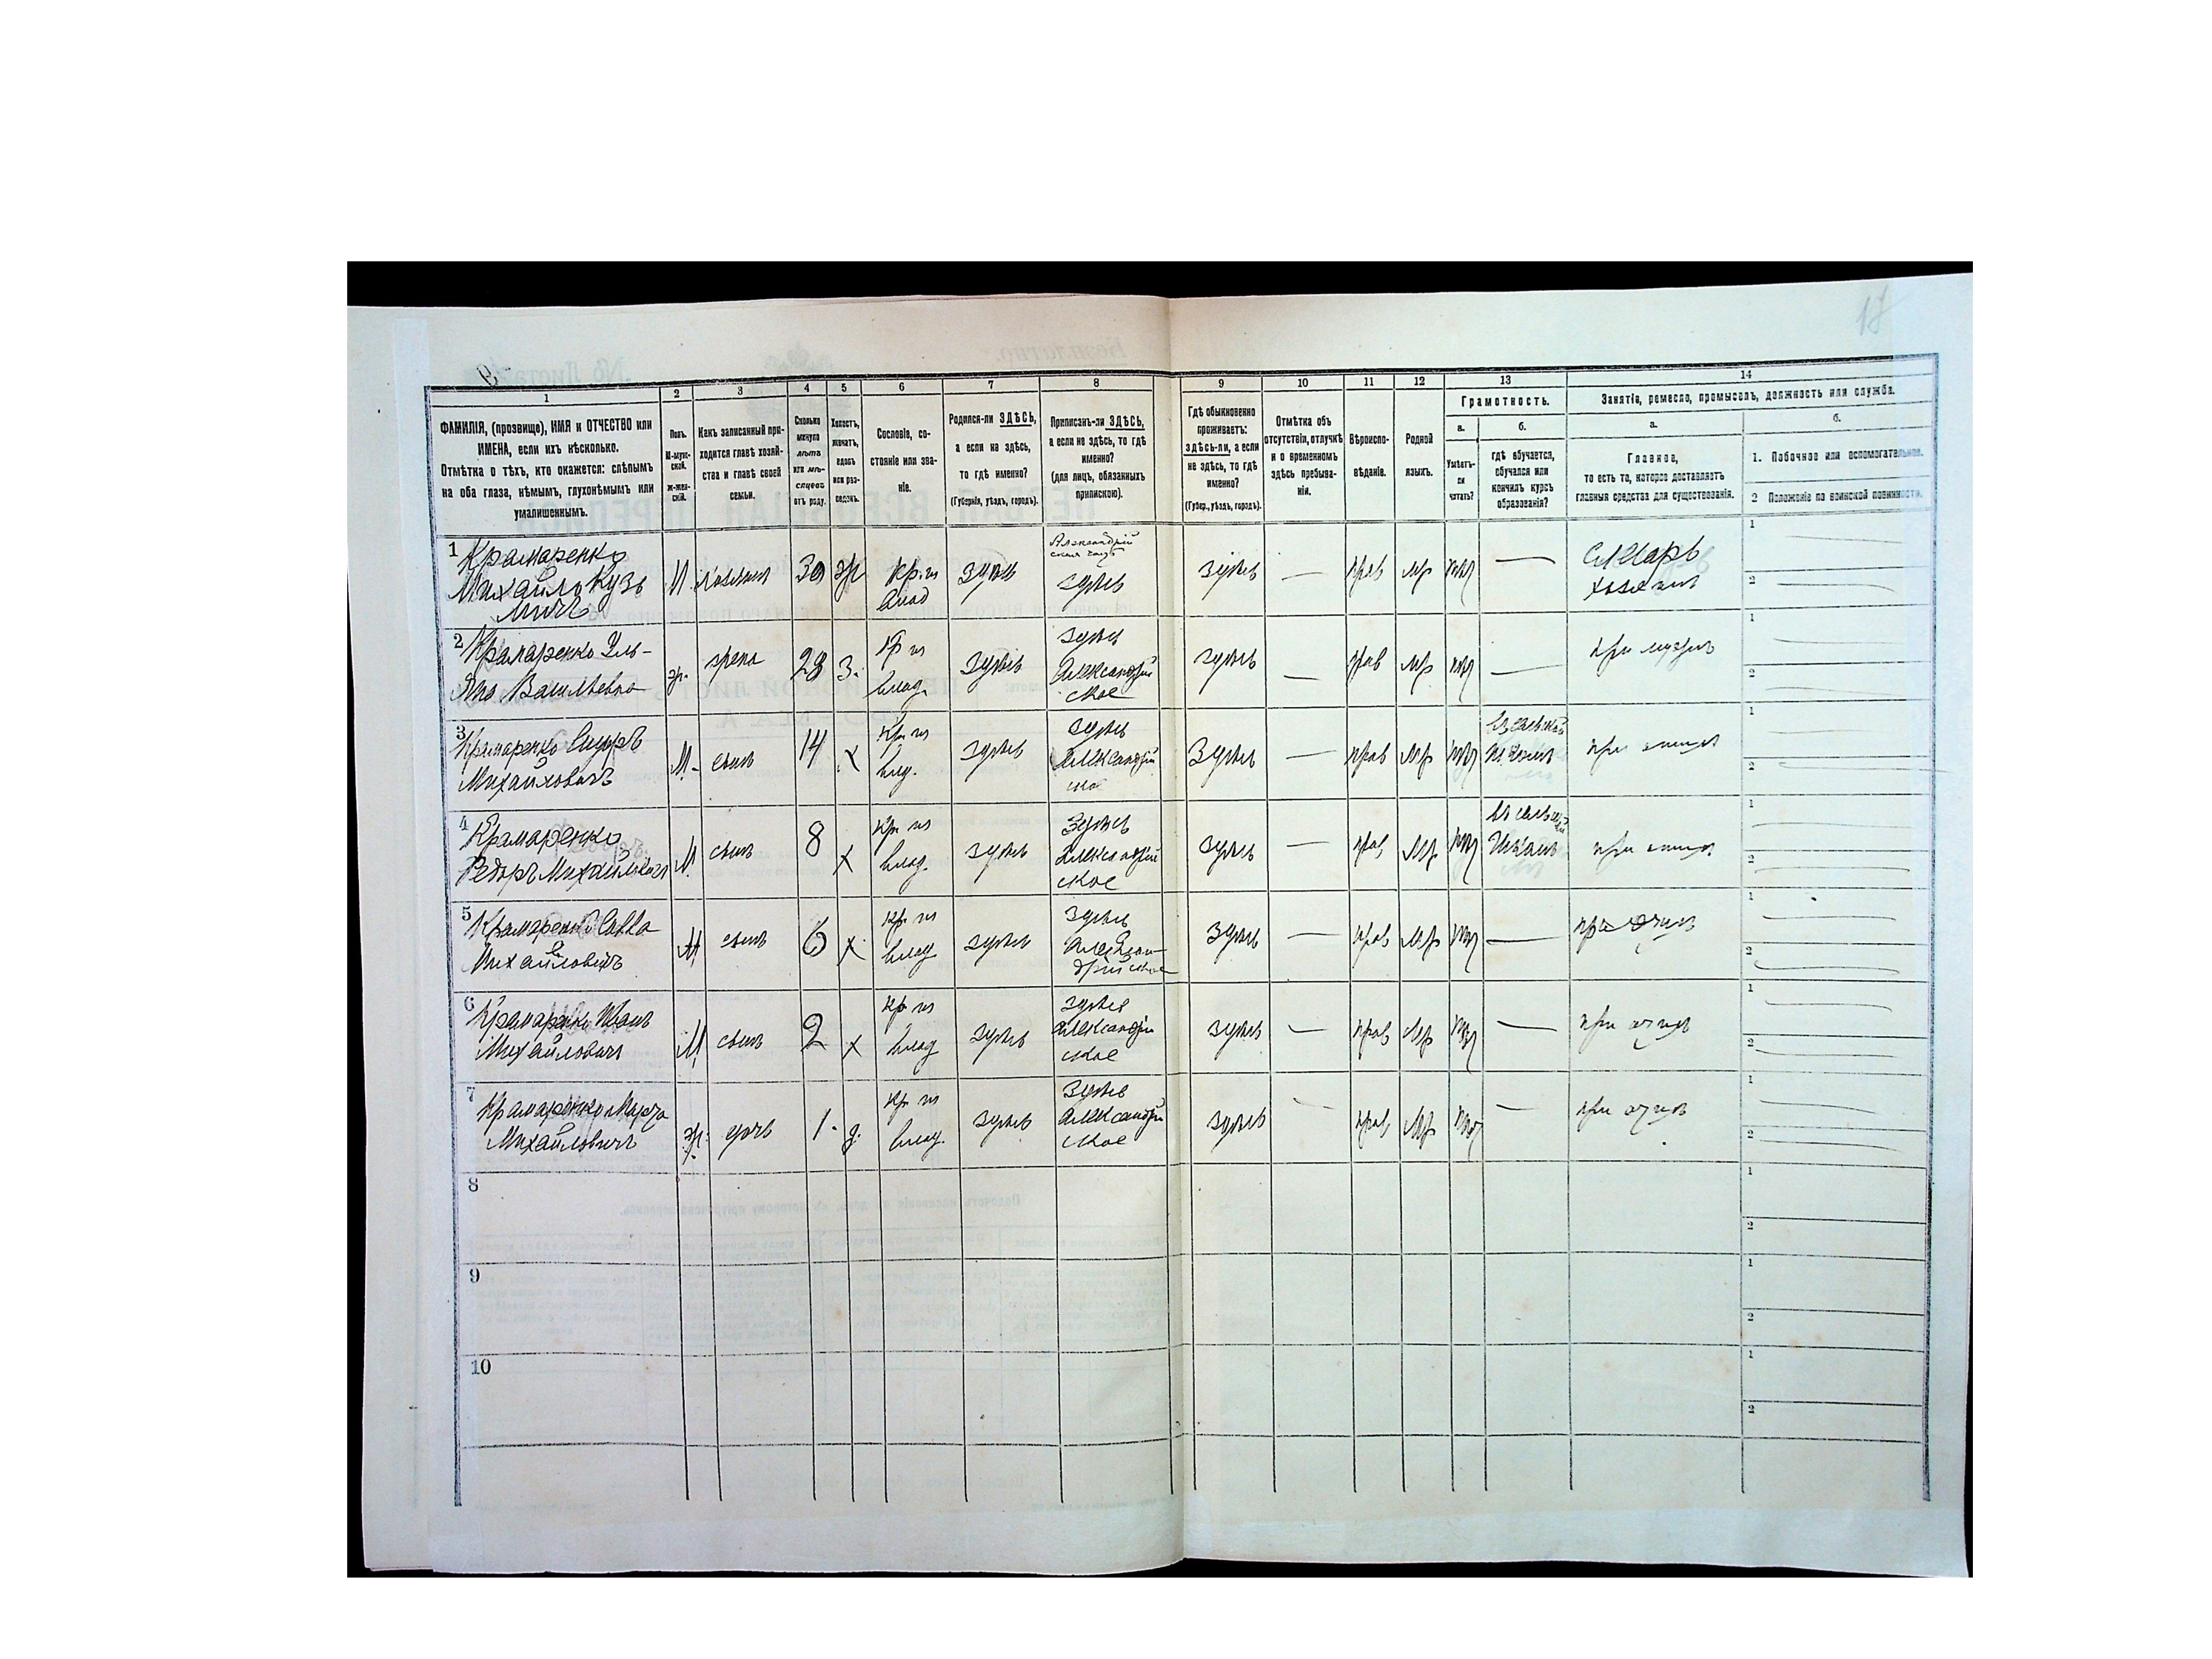 17
1 2 3 4 5 6 7 8 9 10 11 12 13 14
ФАМИЛІЯ, (прозвище), ИМЯ и ОТЧЕСТВО или
ИМЕНА, если ихъ нѣсколько.
Отмѣтка о тѣхъ, кто окажется: слѣпымъ
на оба глаза, нѣмымъ, глухонѣмымъ или
умалишеннымъ.
Полъ.
М-муж-
ской.
ж-жен-
скій.
Какъ записанный при-
ходится главѣ хозяй-
ства и главѣ своей
семьи.
Сколько
минуло
лѣтъ
или мѣ-
сяцевъ
отъ роду.
Холостъ,
женатъ,
вдовъ
или раз-
веденъ.
Сословіе, со-
стояніе или зва-
ніе.
Родился-ли ЗДѢСЬ,
а если не здѣсь,
то гдѣ именно?
(Губернія, уѣздъ, городъ).
Приписанъ-ли ЗДѢСЬ,
а если не здѣсь, то гдѣ
именно?
(для лицъ, обязанныхъ
припискою).
Гдѣ обыкновенно
проживаетъ:
здѣсь-ли, а если
не здѣсь, то гдѣ
именно?
(Губер., уѣздъ, городъ).
Отмѣтка объ
отсутствіи, отлучкѣ
и о временномъ
здѣсь пребыва-
ніи.
Вѣроиспо-
вѣданіе.
Родной
языкъ.
Грамотность.
а.
Умѣетъ-
ли
читать?
б.
гдѣ обучается,
обучался или
кончилъ курсъ
образованія?
Занятіе, ремесло, промыселъ, должность или служба.
а.
Главное,
то есть то, которое доставляетъ
главныя средства для существованія.
б.
1. Побочное или вспомогательное.
2 Положеніе по воинской повинности.
1 Крамаренко
Михайло Кузь
мичъ
здѣсь
здѣсь
здѣсь
прав
мр
1
2
2 Крамаренко Уль-
яна Васильевна
ж.
жена
28
з.
влад.
здѣсь
здѣсь
Александрій
ское
здѣсь
прав
мр
при мужѣ
1
2
3 Крамаренко Сидоръ
Михайловичъ
М.
сынъ
14
х
здѣсь
здѣсь
Александрій
здѣсь
прав
мр
1
2
4 Крамаренко
Федоръ Михайловичъ
М.
сынъ
8
х
влад.
здѣсь
здѣсь
Александрій
ское
здѣсь
прав
мр
1
2
5 Крамаренко Савва
Михайловичъ
М
сынъ
6
х
влад
здѣсь
здѣсь
Алексан
дрійское
здѣсь
прав
мр
1
2
6 Крамаренко Иванъ
Михайловичъ
М
сынъ
2
х
влад
здѣсь
здѣсь
Александрій
ское
здѣсь
прав
мр
1
2
7 Крамаренко
Михайловичъ
ж.
дочь
1.
д.
влад.
здѣсь
здѣсь
Александрій
ское
здѣсь
прав
мр
1
2
8
1
2
9
1
2
10
1
2